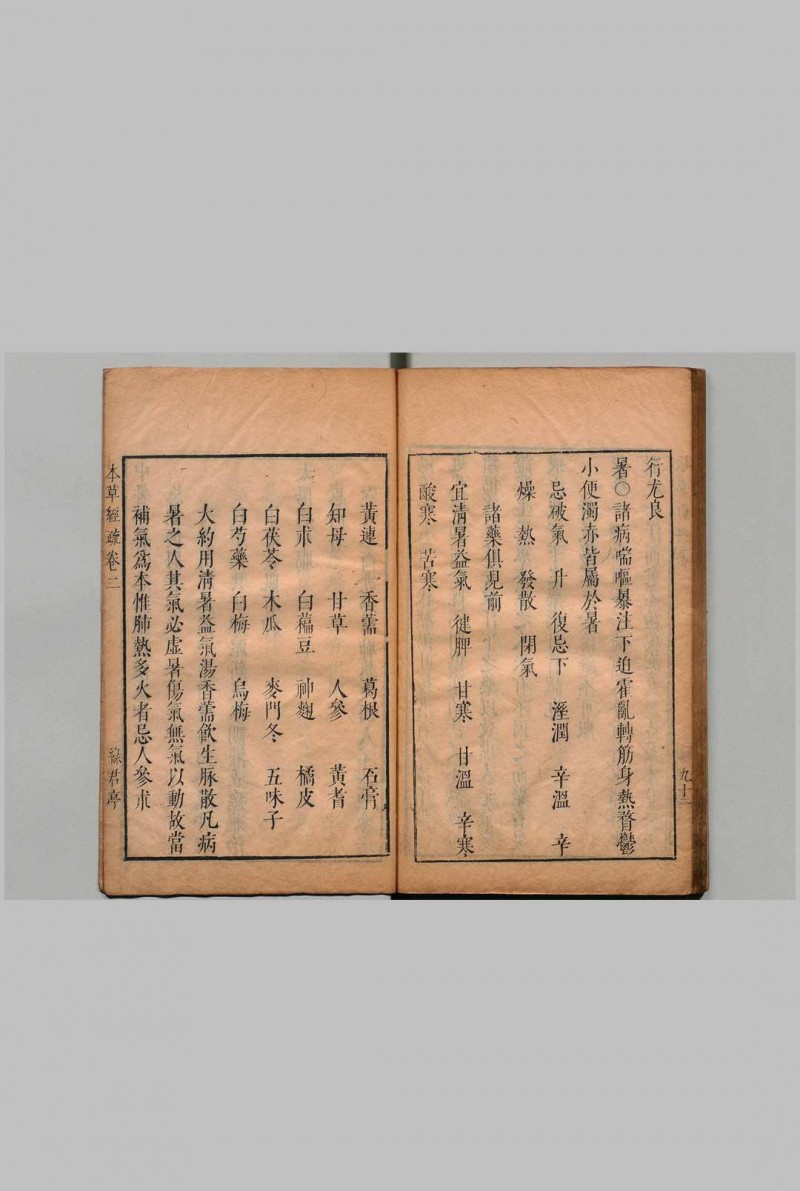 行尤良
暑○諸病喘嘔暴注下迫霍亂轉筋身熱瞀鬱
小便濁赤皆屬於暑
忌破氣　升　復忌下　溼潤　辛溫　辛
燥　熱　發散　閉氣
諸藥俱見前
宜清暑益氣　健脾　甘寒　甘溫　辛寒
酸寒　苦寒
九十三
黃連　香薷　葛根　石膏
知母　甘草　人參　黃耆
白朮　白藊豆　神麴　橘皮
白茯苓　木瓜　麥門冬　五味子
白芍藥　白梅　烏梅
大約用清暑益氣湯香薷飲生脈散凡病
暑之人其氣必虛暑傷氣無氣以動故當
補氣爲本惟肺熱多火者忌人參朮
本草經疏卷二
綠君亭